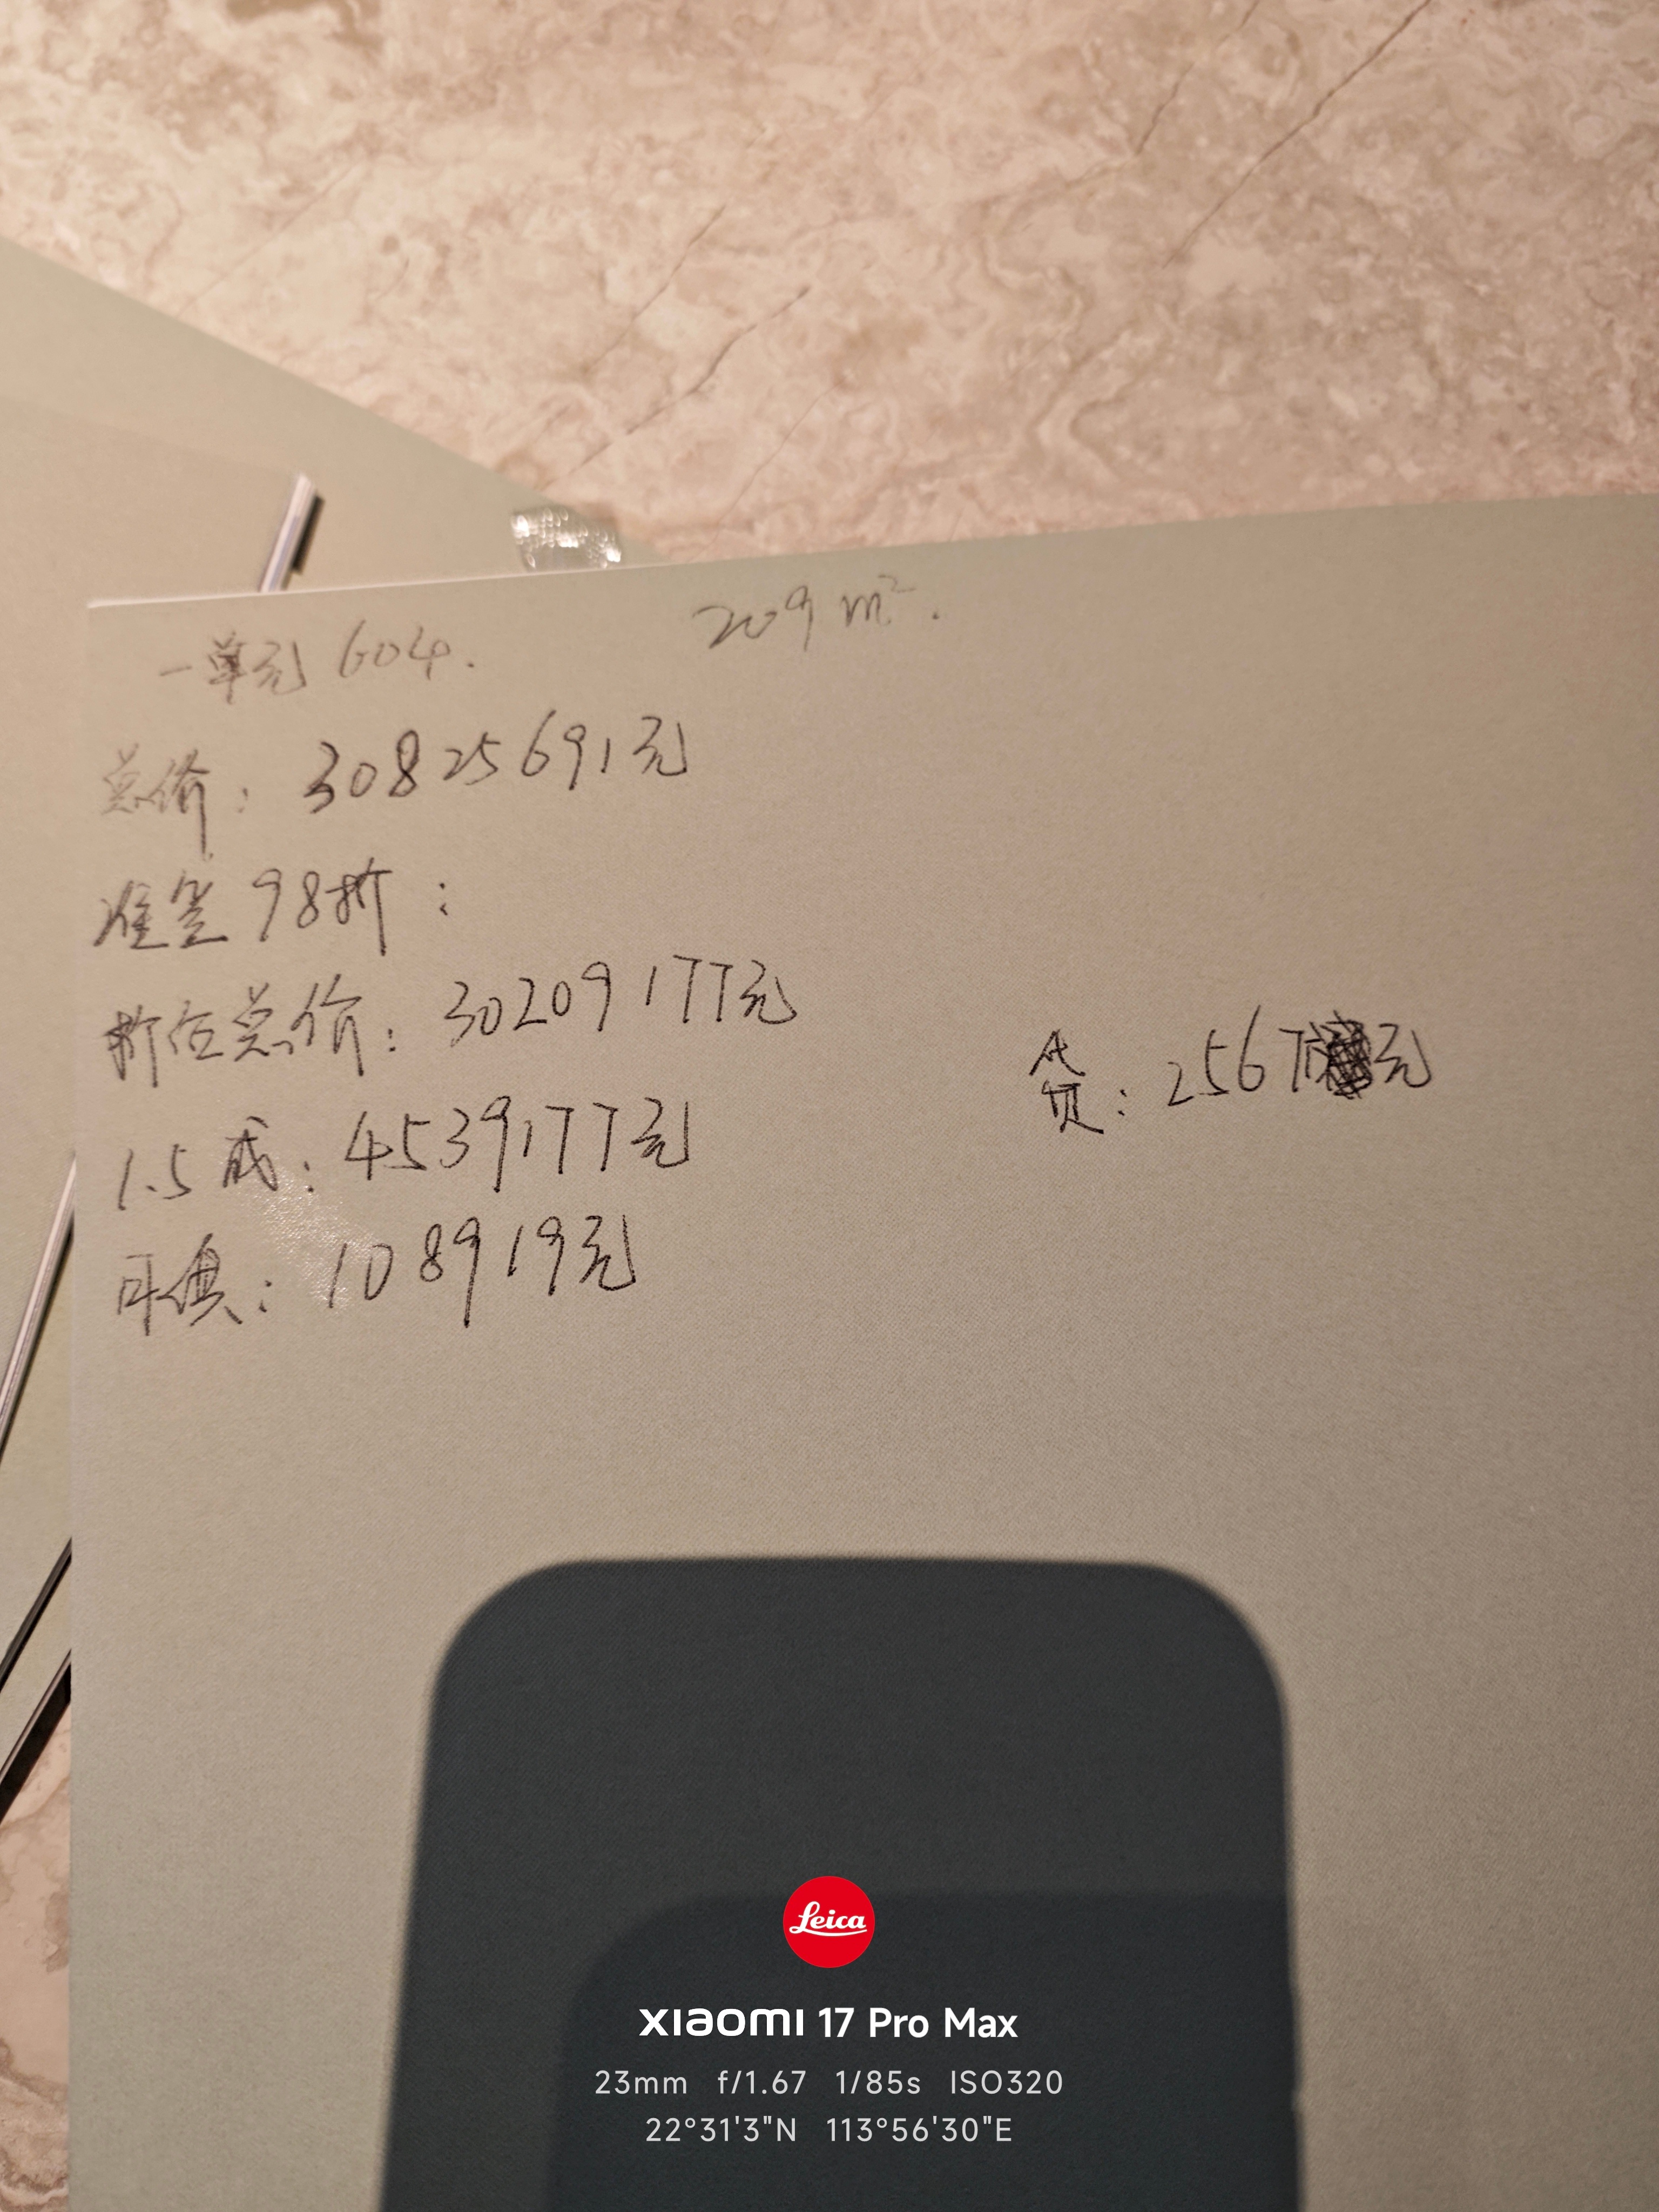 一单元 604. 209 m².
总价: 30825691元
准签 98折:
折后总价: 30209177元
贷: 2567元
1.5成: 4539177元
月供: 108919元
Leica
xiaomi 17 Pro Max
23mm f/1.67 1/85s ISO320
22°31'3"N 113°56'30"E